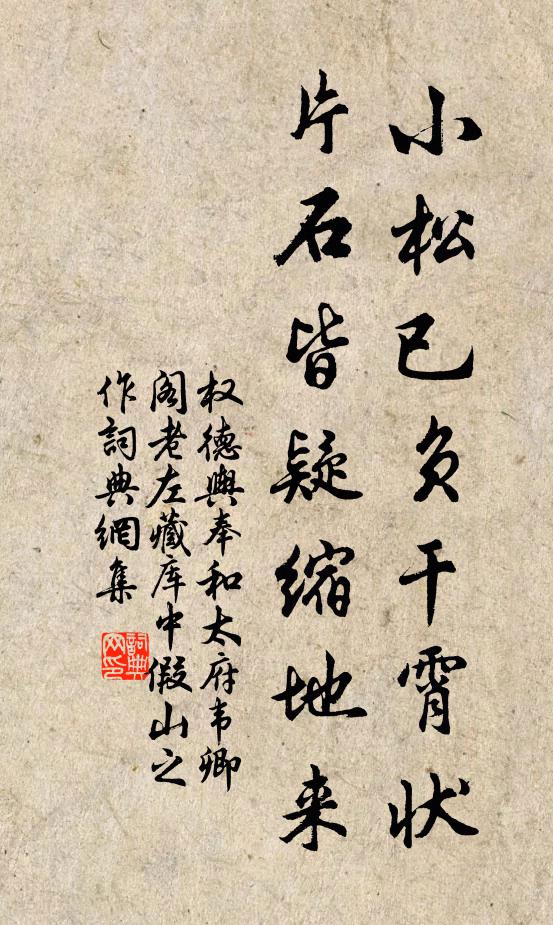 小松已负干霄状
片石皆疑缩地来
权德舆奉和太府韦卿
阁老左藏库中假山之
作词典網集
詞典
网印